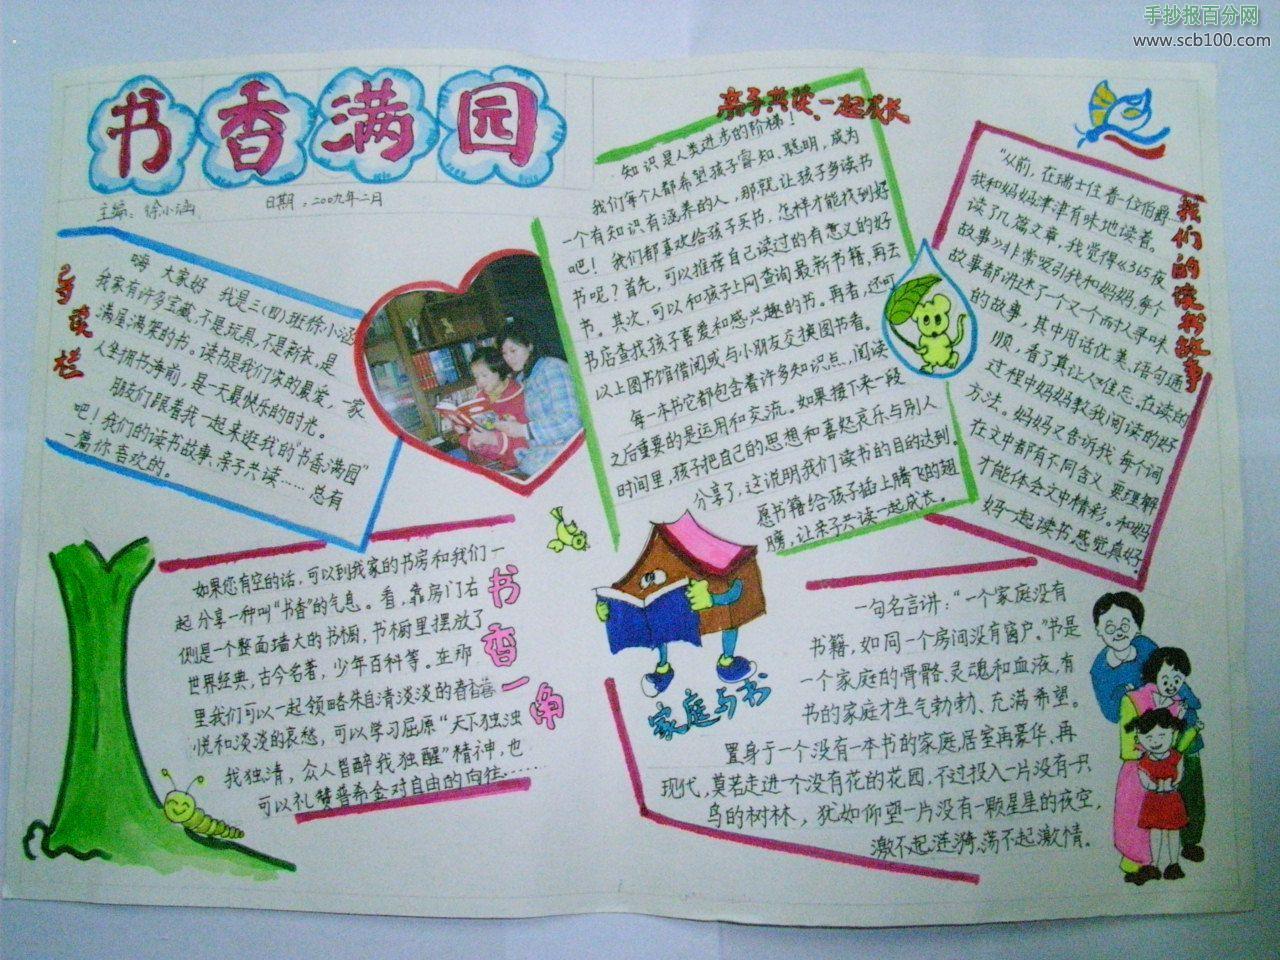 手抄报百分网
www.scb100.com
书香满园
主编：徐小涵
日期：2009年二月
导读栏
嗨 大家好 我是三(四)班徐小涵
我家有许多宝藏,不是玩具,不是新衣,是
满屋满架的书。读书是我们家的最爱,一家
人坐拥书海前,是一天最快乐的时光。
朋友们跟着我一起来逛我的“书香满园”
吧!我们的读书故事、亲子共读……总有
一篇你喜欢的。
亲子共读、一起成长
知识是人类进步的阶梯!
我们每个人都希望孩子睿知、聪明,成为
一个有知识有涵养的人,那就让孩子多读书
吧! 我们都喜欢给孩子买书,怎样才能找到好
书呢?首先,可以推荐自己读过的有意义的好
书。其次,可以和孩子上网查询最新书籍,再去
书店查找孩子喜爱和感兴趣的书。再者,还可
以上图书馆借阅或与小朋友交换图书看。
每一本书它都包含着许多知识点,阅读
之后重要的是运用和交流。如果接下来一段
时间里,孩子把自己的思想和喜怒哀乐与别人
分享了,这说明我们读书的目的达到。
愿书籍给孩子插上腾飞的翅
膀,让亲子共读一起成长。
我们的读书故事
“从前,在瑞士住着一位伯爵……
我和妈妈津津有味地读着。
读了几篇文章,我觉得《365夜
故事》非常吸引我和妈妈,每个
故事都讲述了一个又一个耐人寻味
的故事,其中用话优美,语句通
顺,看了真让人难忘。在读的
过程中妈妈教我阅读的好
方法。妈妈又告诉我,每个词
在文中都有不同含义,要理解
才能体会文中精彩。和妈
妈一起读书感觉真好
书香一角
如果您有空的话,可以到我家的书房和我们一
起分享一种叫“书香”的气息。看,靠房门右
侧是一个整面墙大的书橱,书橱里摆放了
世界经典,古今名著,少年百科等。在那
里我们可以一起领略朱自清淡淡的喜
悦和淡淡的哀愁,可以学习屈原“天下独浊
我独清,众人皆醉我独醒”精神,也
可以礼赞普希金对自由的向往……
家庭与书
一句名言讲:“一个家庭没有
书籍,如同一个房间没有窗户。”书是
一个家庭的骨骼、灵魂和血液,有
书的家庭才生气勃勃、充满希望。
置身于一个没有一本书的家庭,居室再豪华、再
现代,莫若走进一个没有花的花园,不过投入一片没有一只
鸟的树林,犹如仰望一片没有一颗星星的夜空,
激不起涟漪,荡不起激情。